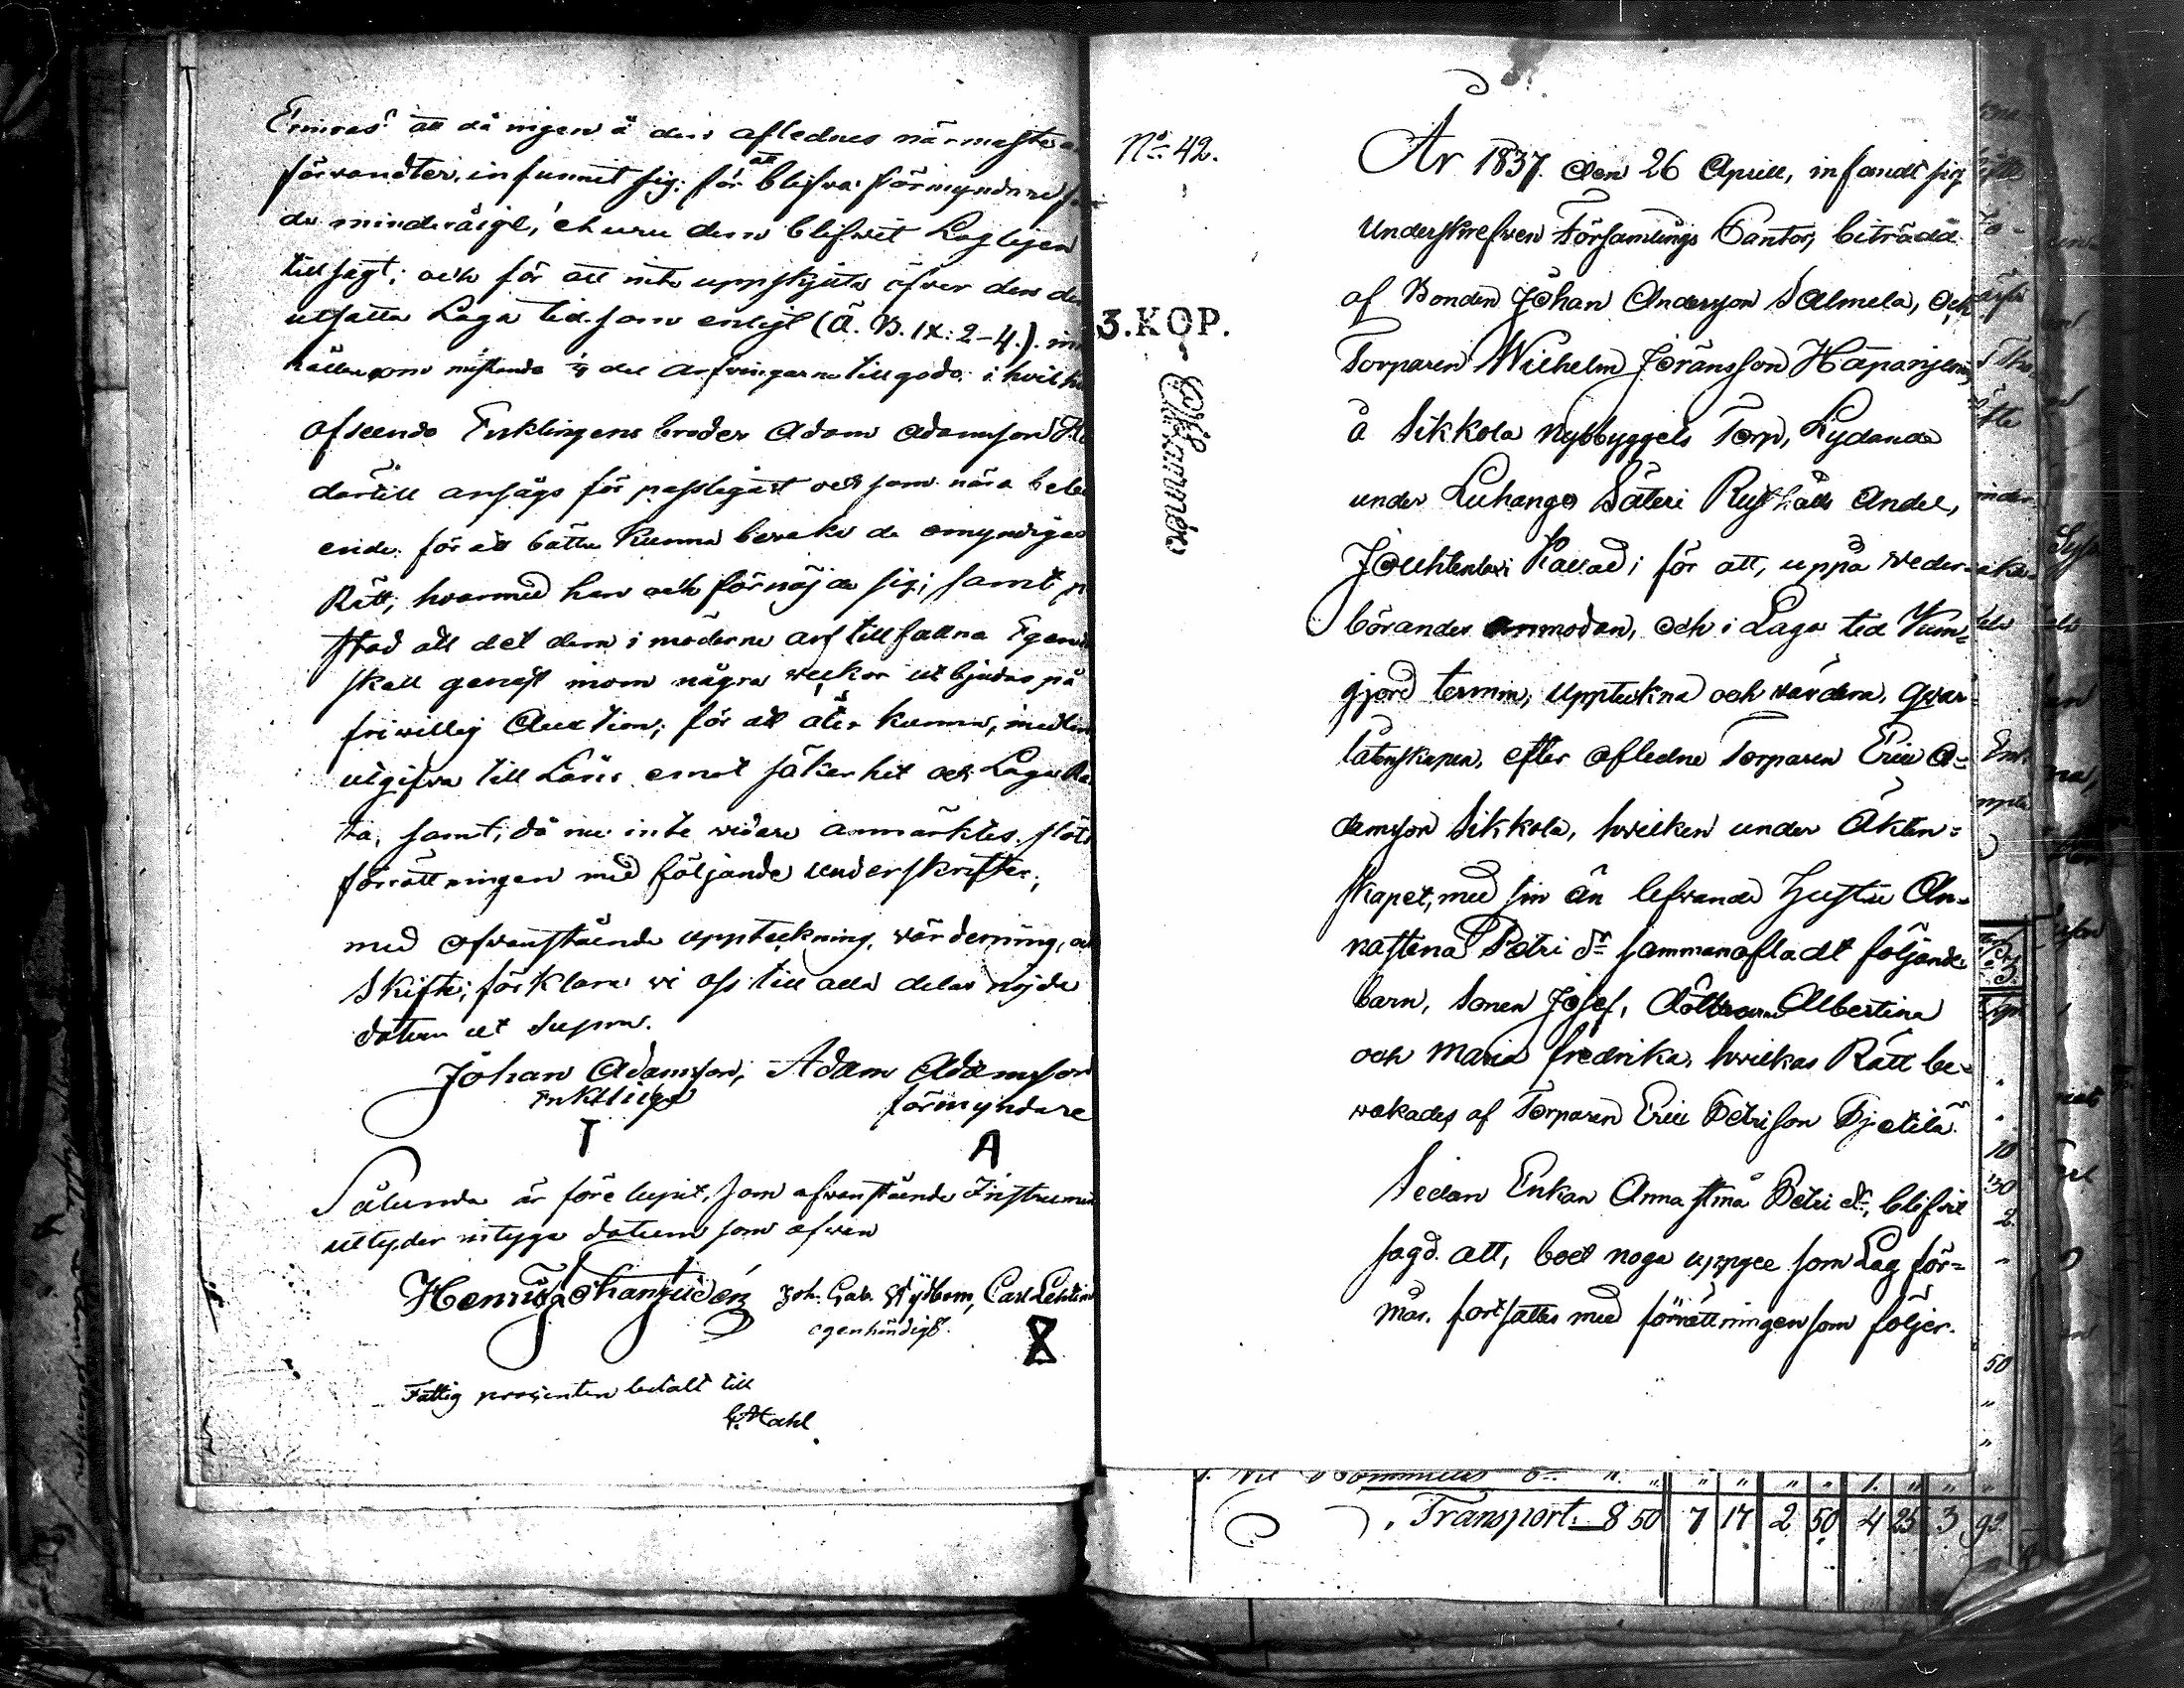 Ernras att då ingen å den aflednes närmaste
förvandter, infunnit sig: för att blifva förmyndare
de minderåige, ehuru dem blifwit Lagligen
tillsagt; och för att inte uppskjuta öfver den der
utsatta Laga tid som enligt (Ä. B. IX: 2-4.).
som mistande ¼ del arfvingarna till godo. i hvilket
afseende Enklingens broder Adam Adamsson
dertill ansågs för passligast och som nära bele
ende: för att bättre kunna bevaka de omyndigas
Rätt, hvarmed han och förnöjde sig; samt
stad att det dem i möderne arf tillfallna Egen
skall genast inom några veckor utbjudas på
friwillig Auction; för att åter kunna, medlen
utgifva till Låns emot säkerhet och Laga Rä
ta, samt, då nu inte vidare anmärktes, slöts
förrättningen med följande underskrifter;
med ofvanstående uppteckning, värdering, och
Skifte; förklara vi oss till alla delar nöjde
datum ut supra.
Johan Adamsson, Adam Adamsson
Enkling förmyndare
T A
Sålunda är före lupit, som ofvanstående Instrument
utlyder intyga datum som ofvan
Joh. Gab. Nydbom, Carl Lehtin
egenhändigt.
Fattig procenten betalt till
G. Stahl
No 42.
3. KOP.
År 1837. den 26 Aprill, infandt sig
Underskrefwen Församlings Cantor, biträdd
af Bonden Johan Andersson Salmela, och
Torparen Wilhelm Joransson Haapaniemi,
å Sikkola nybbyggets Torp, Lydande
under Luhanga Säteri Rusthålls Andel,
Jouhtenlaxi Kallad; för att, uppå weder-
börandes anmodan, och i Laga tid Kun-
gjord termin, Uppteckna och värdera, qvar-
låtenskapen, efter afledne Torparen Eric A=
damsson Sikkola, hwilken under Äkten=
skapet, med sin än lefvande Hustru An=
nastina Petri Dr sammanafladt följande
barn, Sonen Josef, döttrarna Albertina
och Maria Fredrika, hwilkas Rätt be-
vakades af Torparen Eric Petrison Pjetilä.
Sedan Enkan Anna Stina Petri Dr, blifvit
sagd. att, boet noga uppgee som Lag för=
mår. fortsattes med förrättningen som följer.
Transport. 8 50 7 17 2 50 4 25 3 92